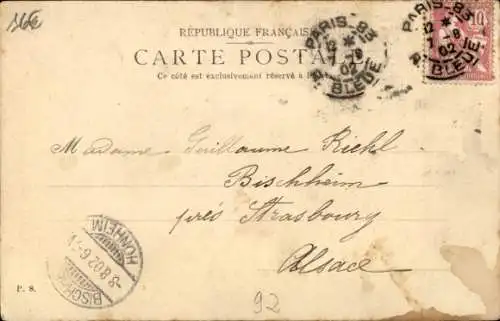 RÉPUBLIQUE FRANÇAISE
CARTE POSTALE
Ce côté est exclusivement réservé à
PARIS-83
12 *
7 - 8
02
R. BLEUE
PARIS-83
12 *
7 - 8
02
R. BLEUE
10
Madame Guillaume Riehl
Bischheim
près Strasbourg
Alsace
HÖNHEIM
-8.8.02.6-7
P. S.
92